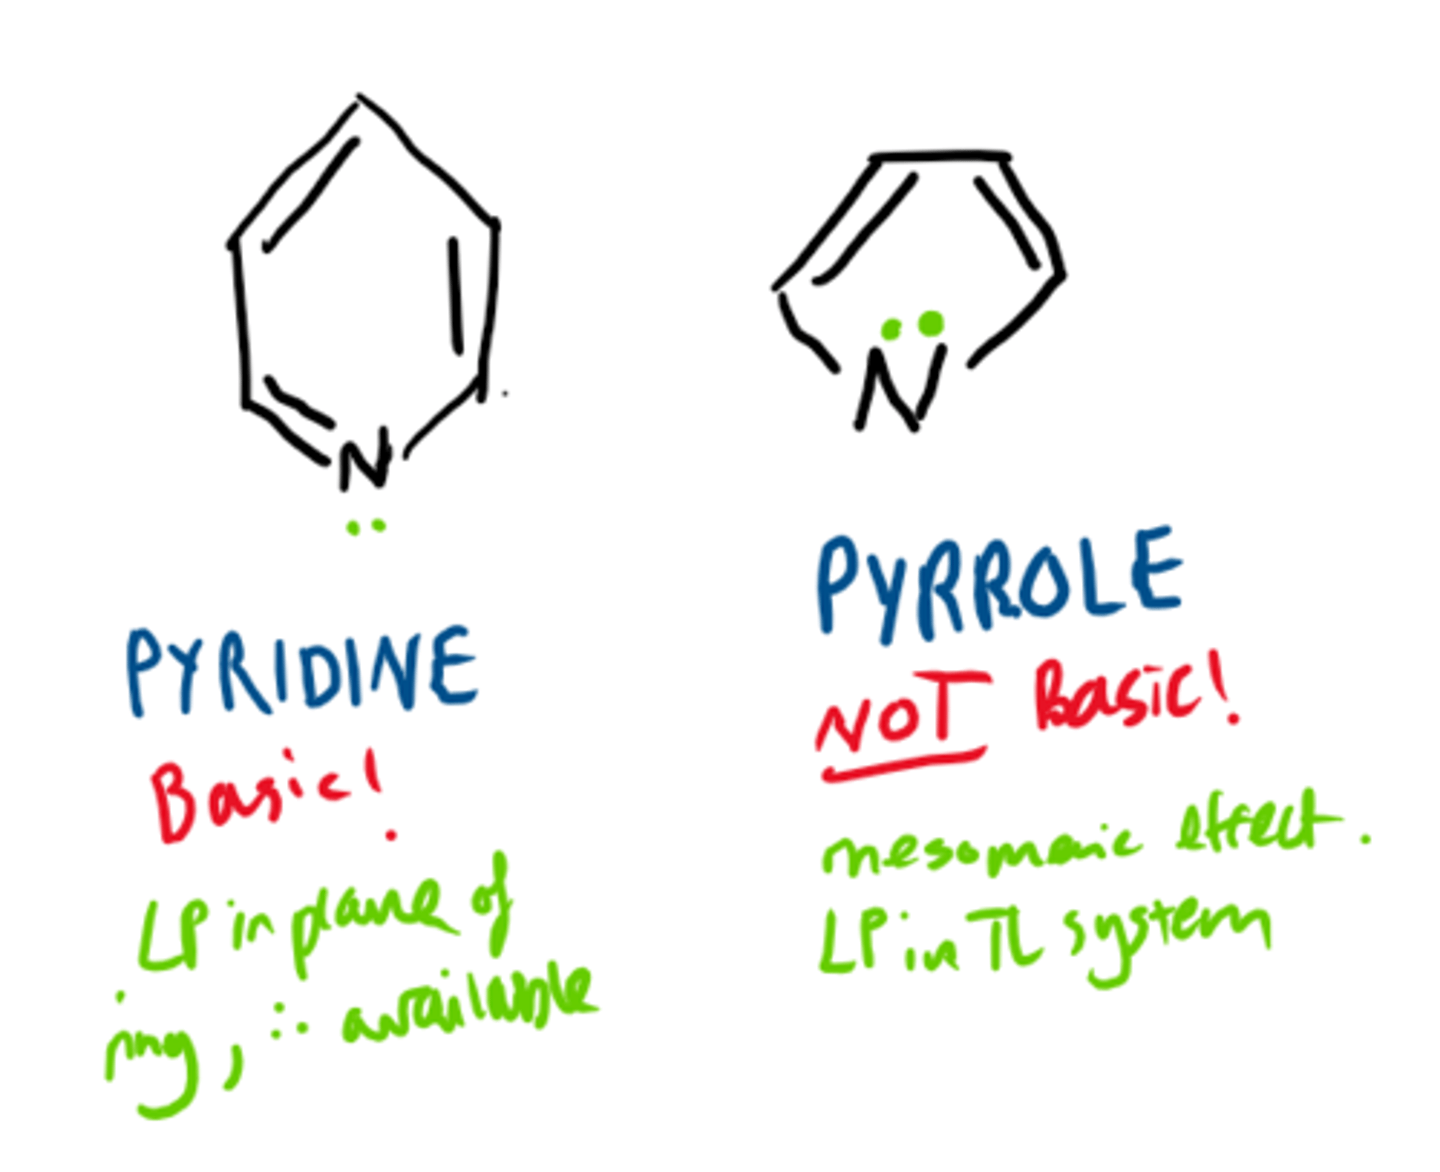 N
PYRIDINE
Basic!
LP in plane of
ring, ∴ available
N
PYRROLE
NOT Basic!
mesomeric effect.
LP in π system